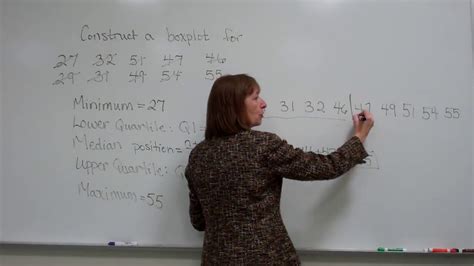 Construct a boxplot for
27 32 51 47 46
29 31 49 54 55
Minimum = 27
31 32 46 | 47 49 51 54 55
Lower Quartile: Q1
Median position = 
Upper Quartile:
Maximum = 55